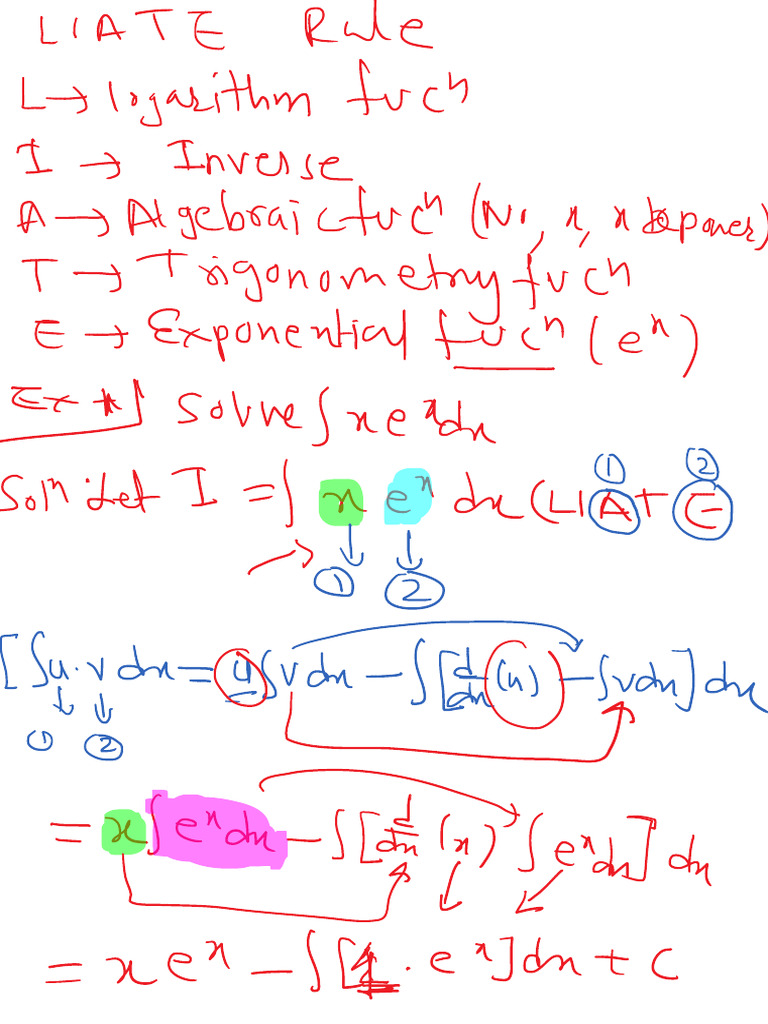 LIATE Rule
L → logarithm fucⁿ
I → Inverse
A → Algebraic fucⁿ (No, x, x power)
T → Trigonometry fucⁿ
E → Exponential fucⁿ (eˣ)
Ex Solve ∫ x eˣ dx
Solⁿ Let I = ∫ x eˣ dx (LIATE
① ②
① ②
[∫u.v dx = u∫v dx - ∫[d/dx (u) - ∫v dx] dx
① ②
= x∫eˣ dx - ∫[d/dx (x) ∫eˣ dx] dx
= x eˣ - ∫[1 . eˣ] dx + c